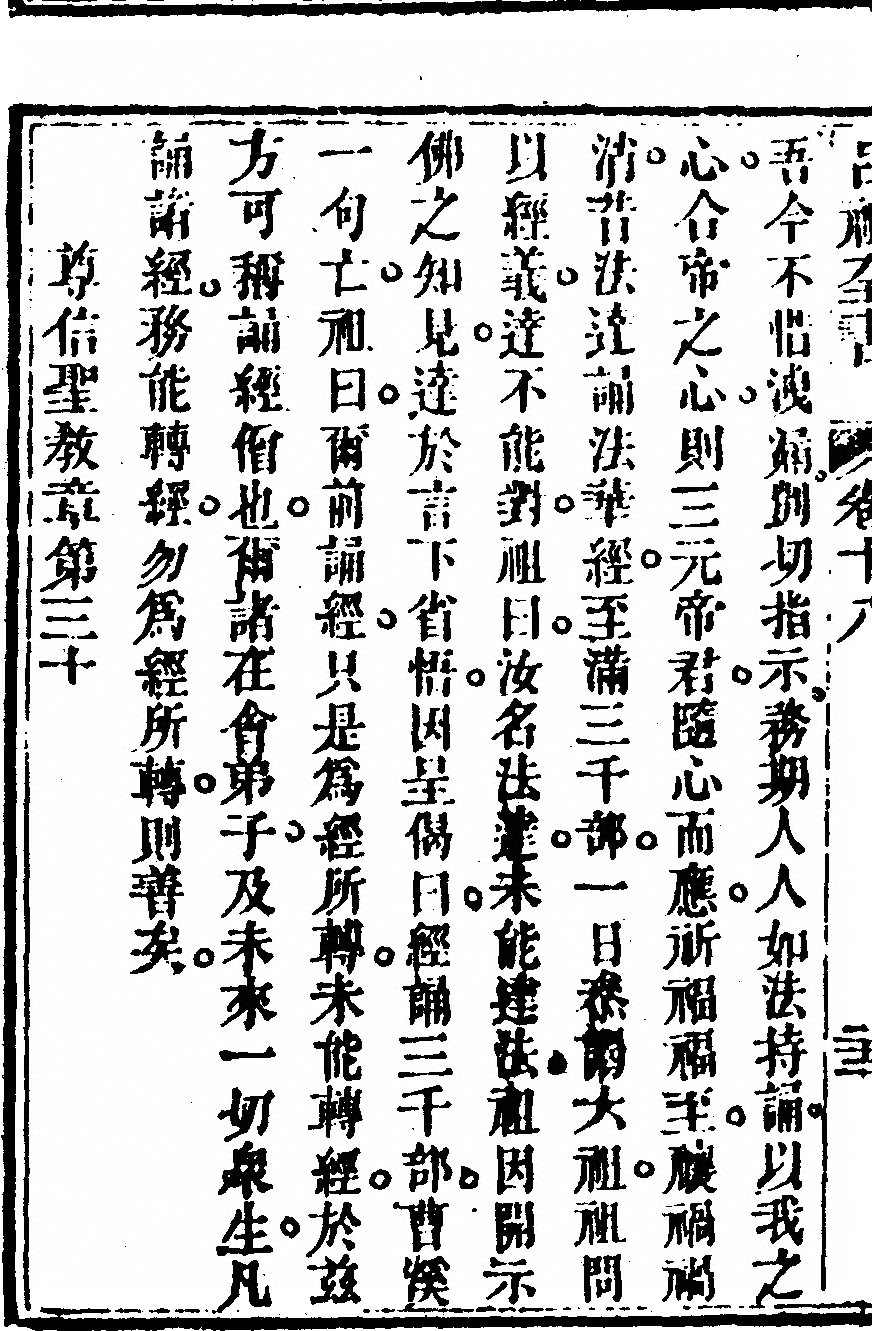 呂祖全書　卷十八
吾今不惜洩漏剴切指示務期人人如法持誦以我之
心合帝之心則三元帝君隨心而應祈福福至禳禍禍
消昔法達誦法華經至滿三千部一日叅謁六祖祖問
以經義達不能對祖曰汝名法達未能達法祖因開示
佛之知見達於言下省悟因呈偈曰經誦三千部曹溪
一句亡祖曰爾前誦經只是爲經所轉未能轉經於茲
方可稱誦經僧也爾諸在會弟子及未來一切衆生凡
誦諸經務能轉經勿爲經所轉則善矣
尊信聖教章第三十